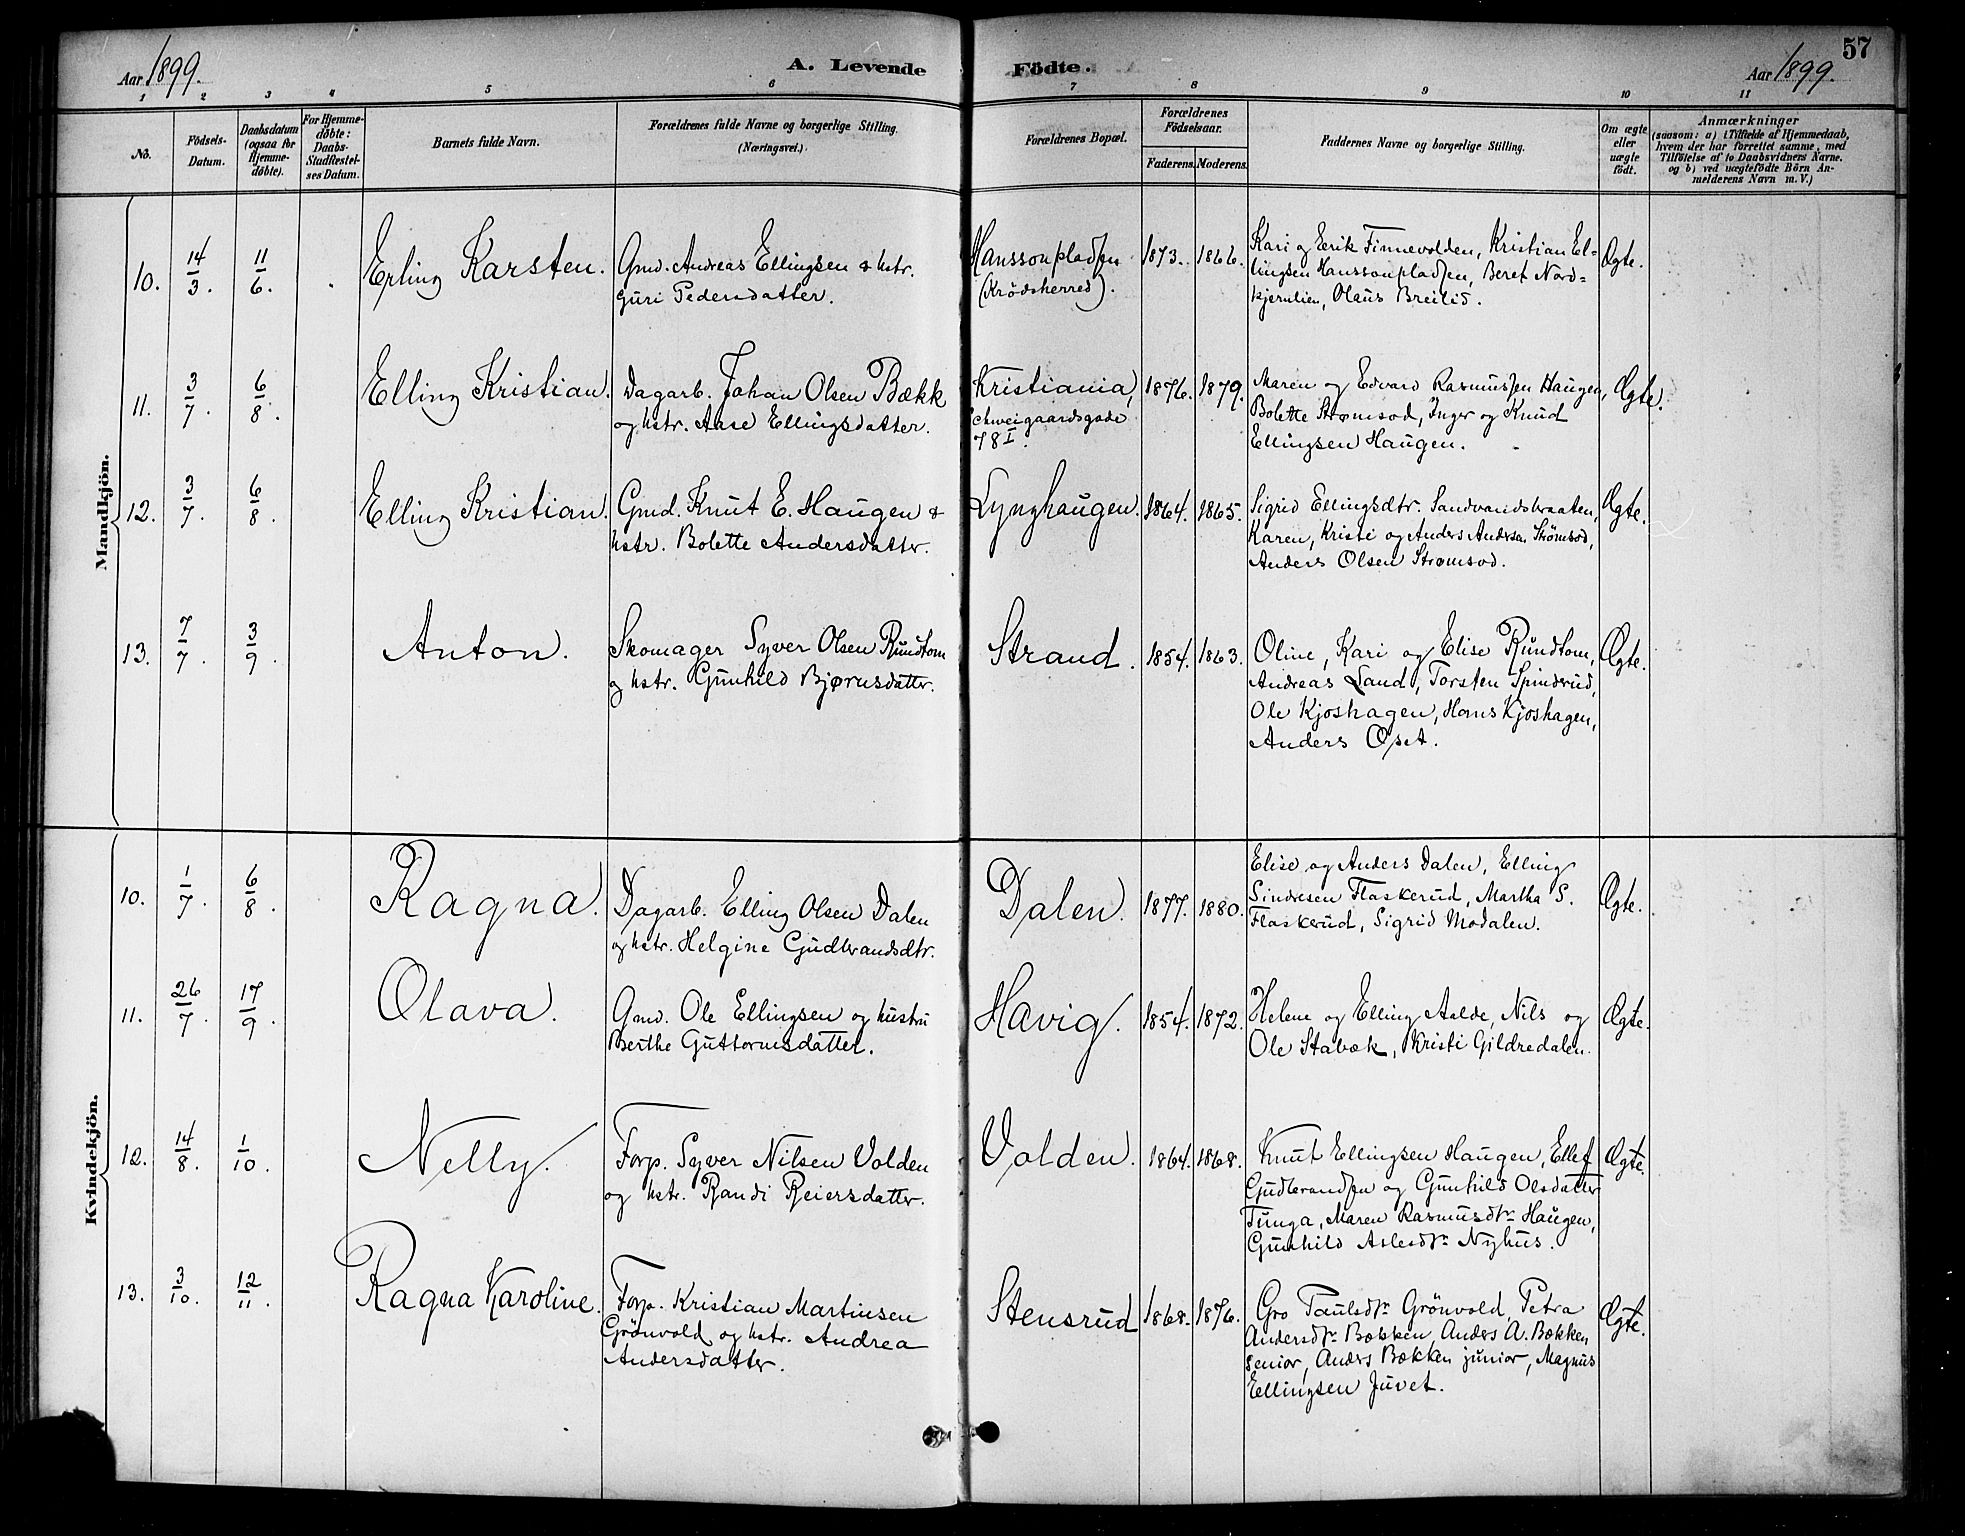 57
Aar 1899.
A. Levende Födte.
Aar 1899.
1 2 3 4 5 6 7 8 9 10 11
No.
Födsels-Datum.
Daabsdatum (ogsaa for Hjemme-döbte).
For Hjemme-döbte: Daabs-Stadfæstel-ses Datum.
Barnets fulde Navn.
Forældrenes fulde Navne og borgerlige Stilling. (Næringsvei.)
Forældrenes Bopæl.
Forældrenes Födselsaar.
Faderens. Moderens.
Faddernes Navne og borgerlige Stilling.
Om ægte eller uægte födt.
Anmærkninger
(saasom: a) i Tilfælde af Hjemmedaab,
hvem der har forrettet samme, med
Tilföielse af to Daabsvidners Navne.
og b) ved uægtefödte Börn An-
melderens Navn m. V.)
Mandkjön.
10. 14/3. 11/6. Erling Karsten.
Gmd. Andreas Ellingsen & hstr.
Guri Pedersdatter.
Hanssonpladsen
(Krödsherred).
1873. 1866.
Kari og Eerik Finnevolden, Kristian El-
lingsen Hanssonpladsen, Beret Nord-
kjernlien, Olaus Breilid.
Ægte.
11. 3/7. 6/8. Elling Kristian.
Dagarb. Johan Olsen Bækk
og hstr. Aase Ellingsdatter.
Kristiania,
Schweigaardsgade
78 I.
1876. 1879.
Maren og Edvard Rasmussen Haugen,
Bolette Strømsod, Inger og Knud
Ellingsen Haugen.
Ægte.
12. 3/7. 6/8. Elling Kristian.
Gmd. Knut E. Haugen &
hstr. Bolette Andersdatter.
Lynghaugen.
1864. 1865.
Sigrid Ellingsdtr. Sandvandsbraaten,
Karen, Kristi og Anders Andersen Strömsod,
Anders Olsen Strømsod.
Ægte.
13. 7/7. 3/9. Anton.
Skomager Syver Olsen Rundtom
og hstr. Gunhild Bjørnsdatter.
Strand.
1854. 1863.
Oline, Kari og Elise Rundtom,
Andreas Sand, Torsten Spinderud,
Ole Kjoshagen, Hans Kjoshagen,
Anders Opset.
Ægte.
Kvindekjön.
10. 1/7. 6/8. Ragna.
Dagarb. Elling Olsen Dalen
og hstr. Helgine Gudbrandsdtr.
Dalen.
1877. 1880.
Elise og Anders Dalen, Elling
Sindresen Flaskerud, Martha S.
Flaskerud, Sigrid Modalen.
Ægte.
11. 26/7. 17/9. Olava.
Gmd. Ole Ellingsen og hustru
Berthe Guttormsdatter.
Havig.
1854. 1872.
Helene og Elling Aalde, Nils og
Ole Stabæk, Kristi Gildredalen.
Ægte.
12. 14/8. 1/10. Nelly.
Forp. Syver Nilsen Volden
og hstr. Randi Reiersdatter.
Volden.
1864. 1868.
Knut Ellingsen Haugen, Ellef
Gudbrandsen og Gunhild Olsdatter
Tunga, Maren Rasmusdtr Haugen,
Gunhild Aslesdtr Nyhus.
Ægte.
13. 3/10. 12/11. Ragna Karoline.
Forp. Kristian Martinsen
Grönvold og hstr. Andrea
Andersdatter.
Stensrud
1868. 1876.
Gro Paulsdtr Grönvold, Petra
Andersdtr Bækken, Anders A. Bækken
senior, Anders Bækken junior, Magnus
Ellingsen Juvet.
Ægte.